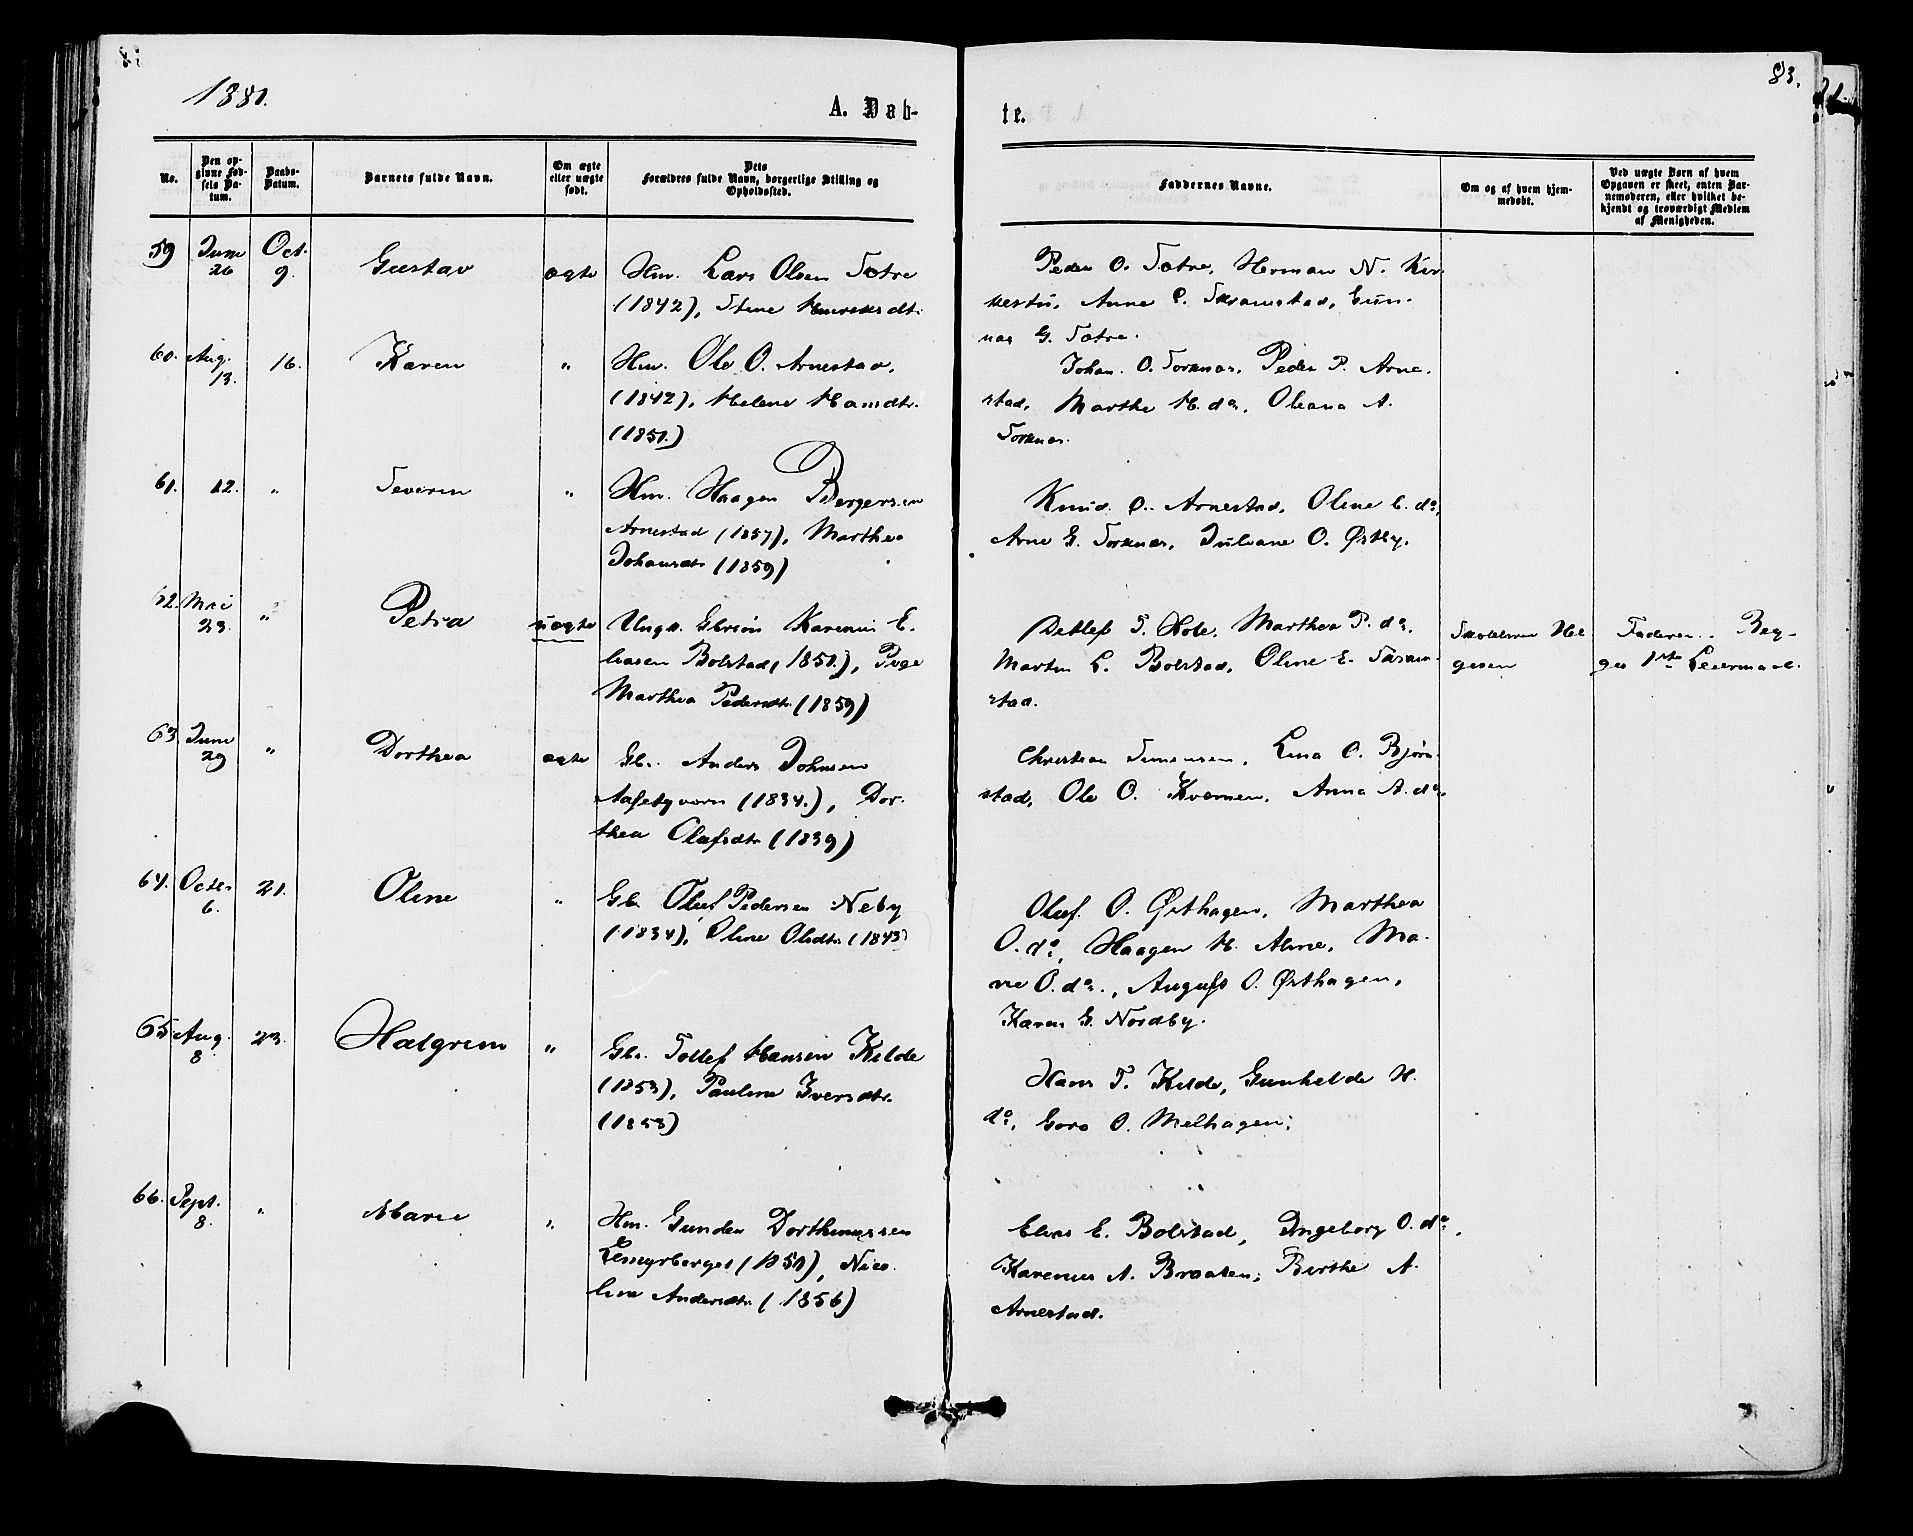 83.
1881.
A. Døb-
te.
No.
Den op-
givne Fød-
sels Da-
tum.
Daabs-
Datum.
Barnets fulde Navn.
Om ægte
eller uægte
født.
Dets
Forældres fulde Navn, borgerlige Stilling og
Opholdssted.
Faddernes Navne.
Om og af hvem hjem-
medøbt.
Ved uægte Børn af hvem
Opgaven er skeet, enten Bar-
nemoderen, eller hvilket be-
kjendt og troværdigt Medlem
af Menigheden.
59 Juni 26 Oct. 9. Gustav ægte Hm. Lars Olsen Sætre
(1842), Stine
Peder O. Sætre, Herman N.
Anne Skramstad, Gun-
nar G. Sætre.
60. Aug. 13. 16. Karen " Hm. Ole O. Arnestad,
(1842), Helene Hansdtr.
(1851.)
Johan O. Torknæs, Peder P. Arne-
stad, Marthe H. do, Oleana A.
Torknæs.
61. 12. " Severin " Hm. Haagen Bergersen
Arnestad (1857), Marthea
Johansdtr (1859)
Knud O. Arnestad, Oline do,
Arne G. Torknæs, Juliane O. Østby.
62. Mai 23. " Petra uægte Ungk. Gbrsøn Karenus E-
liasen Bolstad (1851.), Pige
Marthea Pedersdtr (1859)
Detlef T. Hole, Marthea P. do,
Martin L. Bolstad, Oline E. Skram-
stad.
Skolelærer Hel
gesen
Faderen. Beg-
ges 1ste Leiermaal.
63. Juni 29 " Dorthea ægte Gbr. Anders Johnsen
(1834.), Dor-
thea Olafsdtr (1839)
Christian Simensen, Lina O. Bjørn-
stad, Ole O. Kvernen, Anna A. do.
64. Octbr. 6. 21. Oline " Gbr. Oluf Pedersen Neby
(1834), Oline Olsdtr (1843)
Oluf O. Østhagen, Marthea
O. do, Haagen H. Alme, Ma-
rie O. do., August O. Østhagen,
Karen G. Nordby.
65 Aug. 8 23. Halgrim " Gbr. Tollef Hansen Kilde
(1853), Pauline Iversdtr.
(1858)
Hans T. Kilde, Gunhilde H.
do, Goro O. Melhagen;
66. Sept. 8. " Marie " Hm. Gunder Dorthinussen
(1850), Nico-
line Andersdtr (1856)
Elias E. Bolstad, Ingeborg O. do.
Karenus A. Braaten; Birthe A.
Arnestad.